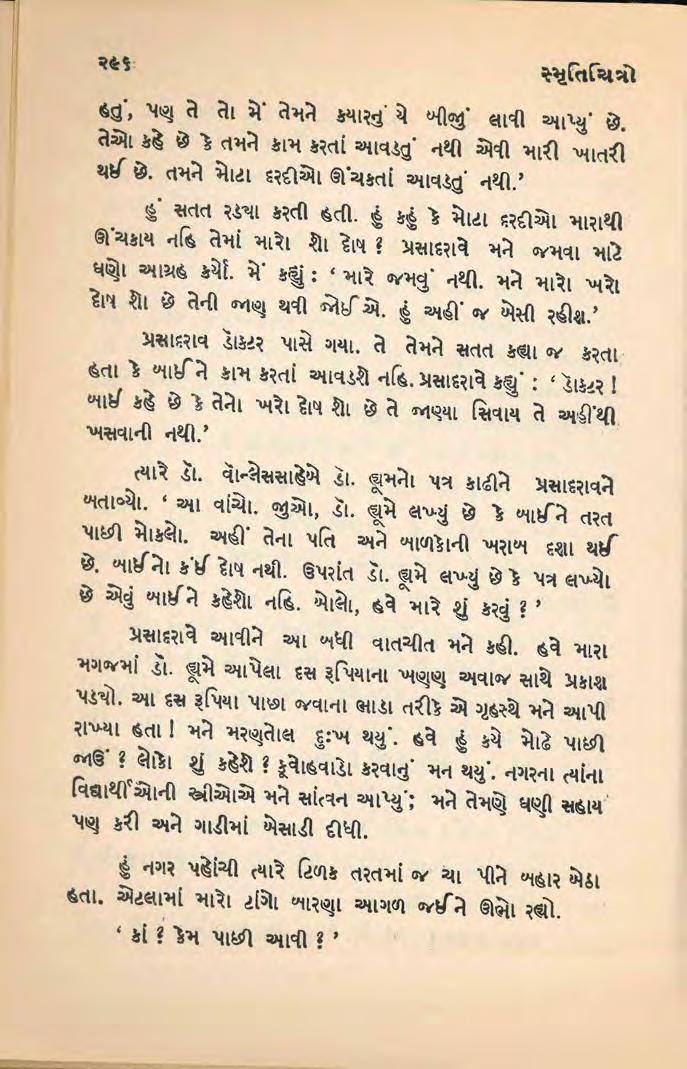 ૨૯૬
સ્મૃતિચિત્રો
હતું, પણ તે તો મેં તેમને ક્યારનું યે બીજું લાવી આપ્યું છે.
તેઓ કહે છે કે તમને કામ કરતાં આવડતું નથી એવી મારી ખાતરી
થઈ છે. તમને મોટા દરદીઓ ઊંચકતાં આવડતું નથી.’
હું સતત રડ્યા કરતી હતી. હું કહું કે મોટા દરદીઓ મારાથી
ઊંચકાય નહિ તેમાં મારો શો દોષ ? પ્રસાદરાવે મને જમવા માટે
ઘણો આગ્રહ કર્યો. મેં કહ્યું : ‘ મારે જમવું નથી. મને મારો ખરો
દોષ શો છે તેની જાણ થવી જોઈએ. હું અહીં જ બેસી રહીશ.’
પ્રસાદરાવ ડૉક્ટર પાસે ગયા. તે તેમને સતત કહ્યા જ કરતા
હતા કે બાઈને કામ કરતાં આવડશે નહિ. પ્રસાદરાવે કહ્યું : ‘ ડૉક્ટર !
બાઈ કહે છે કે તેનો ખરો દોષ શો છે તે જાણ્યા સિવાય તે અહીંથી
ખસવાની નથી.’
ત્યારે ડૉ. વૉન્લેસસાહેબે ડૉ. હ્યૂમનો પત્ર કાઢીને પ્રસાદરાવને
બતાવ્યો. ‘ આ વાંચો. જુઓ, ડૉ. હ્યૂમે લખ્યું છે કે બાઈને તરત
પાછી મોકલો. અહીં તેના પતિ અને બાળકોની ખરાબ દશા થઈ
છે. બાઈનો કંઈ દોષ નથી. ઉપરાંત ડૉ. હ્યૂમે લખ્યું છે કે પત્ર લખ્યો
છે એવું બાઈને કહેશો નહિ. બોલો, હવે મારે શું કરવું ? ’
પ્રસાદરાવે આવીને આ બધી વાતચીત મને કહી. હવે મારા
મગજમાં ડૉ. હ્યૂમે આપેલા દસ રૂપિયાના ખણણ અવાજ સાથે પ્રકાશ
પડ્યો. આ દસ રૂપિયા પાછા જવાના ભાડા તરીકે એ ગૃહસ્થે મને આપી
રાખ્યા હતા ! મને મરણતોલ દુઃખ થયું. હવે હું કયે મોઢે પાછી
જાઉં ? લોકો શું કહેશે ? કૂવોહવાડો કરવાનું મન થયું. નગરના ત્યાંના
વિદ્યાર્થીઓની સ્ત્રીઓએ મને સાંત્વન આપ્યું; મને તેમણે ઘણી સહાય
પણ કરી અને ગાડીમાં બેસાડી દીધી.
હું નગર પહોંચી ત્યારે ટિળક તરતમાં જ ચા પીને બહાર બેઠા
હતા. એટલામાં મારો ટાંગો બારણા આગળ જઈને ઊભો રહ્યો.
‘ કાં ? કેમ પાછી આવી ? ’